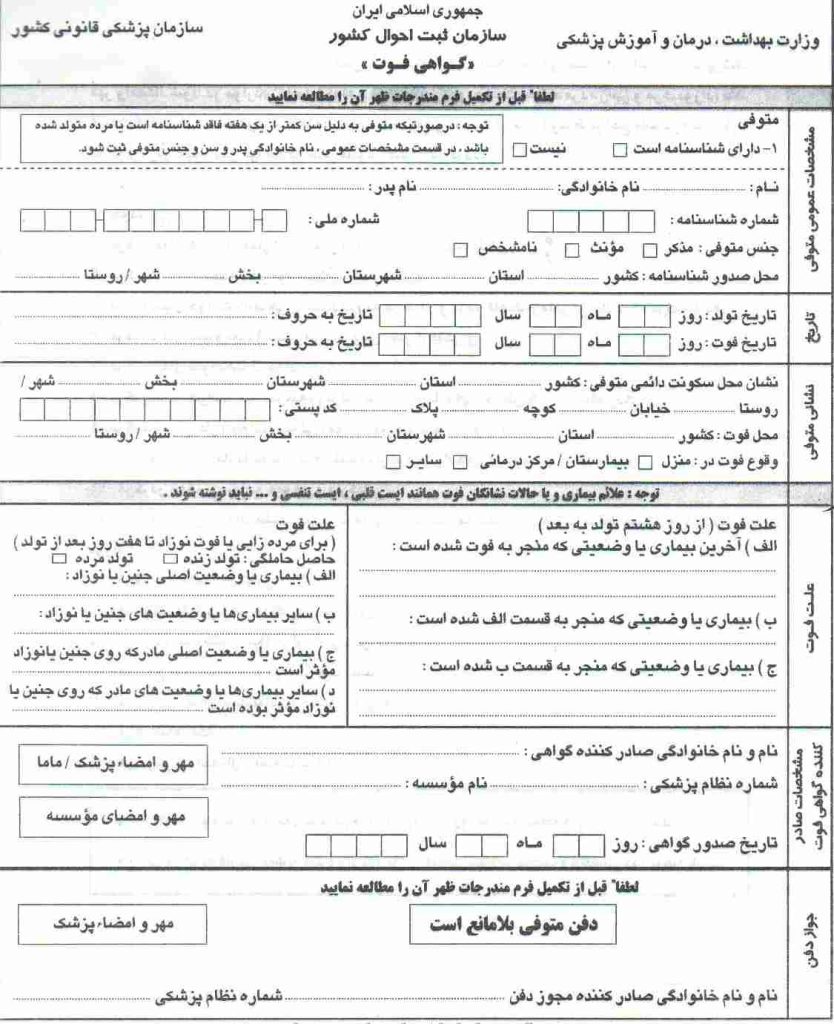 جمهوری اسلامی ایران
وزارت بهداشت ، درمان و آموزش پزشکی
سازمان ثبت احوال کشور
سازمان پزشکی قانونی کشور
«گواهی فوت»
لطفاً قبل از تکمیل فرم مندرجات ظهر آن را مطالعه نمایید
مشخصات عمومی متوفی
متوفی
۱- دارای شناسنامه است نیست
توجه : درصورتیکه متوفی به دلیل سن کمتر از یک هفته فاقد شناسنامه است یا مرده متولد شده
باشد ، در قسمت مشخصات عمومی ، نام خانوادگی پدر و سن و جنس متوفی ثبت شود.
نـام : نام خانوادگی: نام پدر :
شماره شناسنامه : شماره ملی :
جنس متوفی : مذکر مؤنث نامشخص
محل صدور شناسنامه : کشور استان شهرستان بخش شهر / روستا
تاریخ
تاریخ تولد : روز مـاه سال تاریخ به حروف :
تاریخ فوت : روز مـاه سال تاریخ به حروف :
نشانی متوفی
نشان محل سکونت دائمی متوفی : کشور استان شهرستان بخش شهر /
روستا خیابان کوچه پلاک کد پستی :
محل فوت : کشور استان شهرستان بخش شهر / روستا
وقوع فوت در : منزل بیمارستان / مرکز درمانی سایـر
توجه : علائم بیماری و یا حالات نشانگان فوت همانند ایست قلبی ، ایست تنفسی و ... نباید نوشته شوند .
علـت فـوت
علت فوت ( از روز هشتم تولد به بعد )
الف ) آخرین بیماری یا وضعیتی که منجر به فوت شده است :
ب ) بیماری یا وضعیتی که منجر به قسمت الف شده است :
ج ) بیماری یا وضعیتی که منجر به قسمت ب شده است :
علت فوت
( برای مرده زایی یا فوت نوزاد تا هفت روز بعد از تولد )
حاصل حاملگی : تولد زنده تولد مرده
الف ) بیماری یا وضعیت اصلی جنین یا نوزاد :
ب ) سایر بیماری‌ها یا وضعیت های جنین یا نوزاد :
ج ) بیماری یا وضعیت اصلی مادرکه روی جنین یانوزاد
مؤثر است
د ) سایر بیماری‌ها یا وضعیت های مادر که روی جنین یا
نوزاد مؤثر بوده است
مشخصات صادر
کننده گواهی فوت
نام و نام خانوادگی صادر کننده گواهی :
شماره نظام پزشکی : نام مؤسسه :
تاریخ صدور گواهی : روز مـاه سال
مهر و امضاء پزشک / ماما
مهر و امضای مؤسسه
جواز دفن
لطفاً قبل از تکمیل فرم مندرجات ظهر آن را مطالعه نمایید
دفن متوفی بلامانع است
مهر و امضاء پزشک
نام و نام خانوادگی صادر کننده مجوز دفن شماره نظام پزشکی